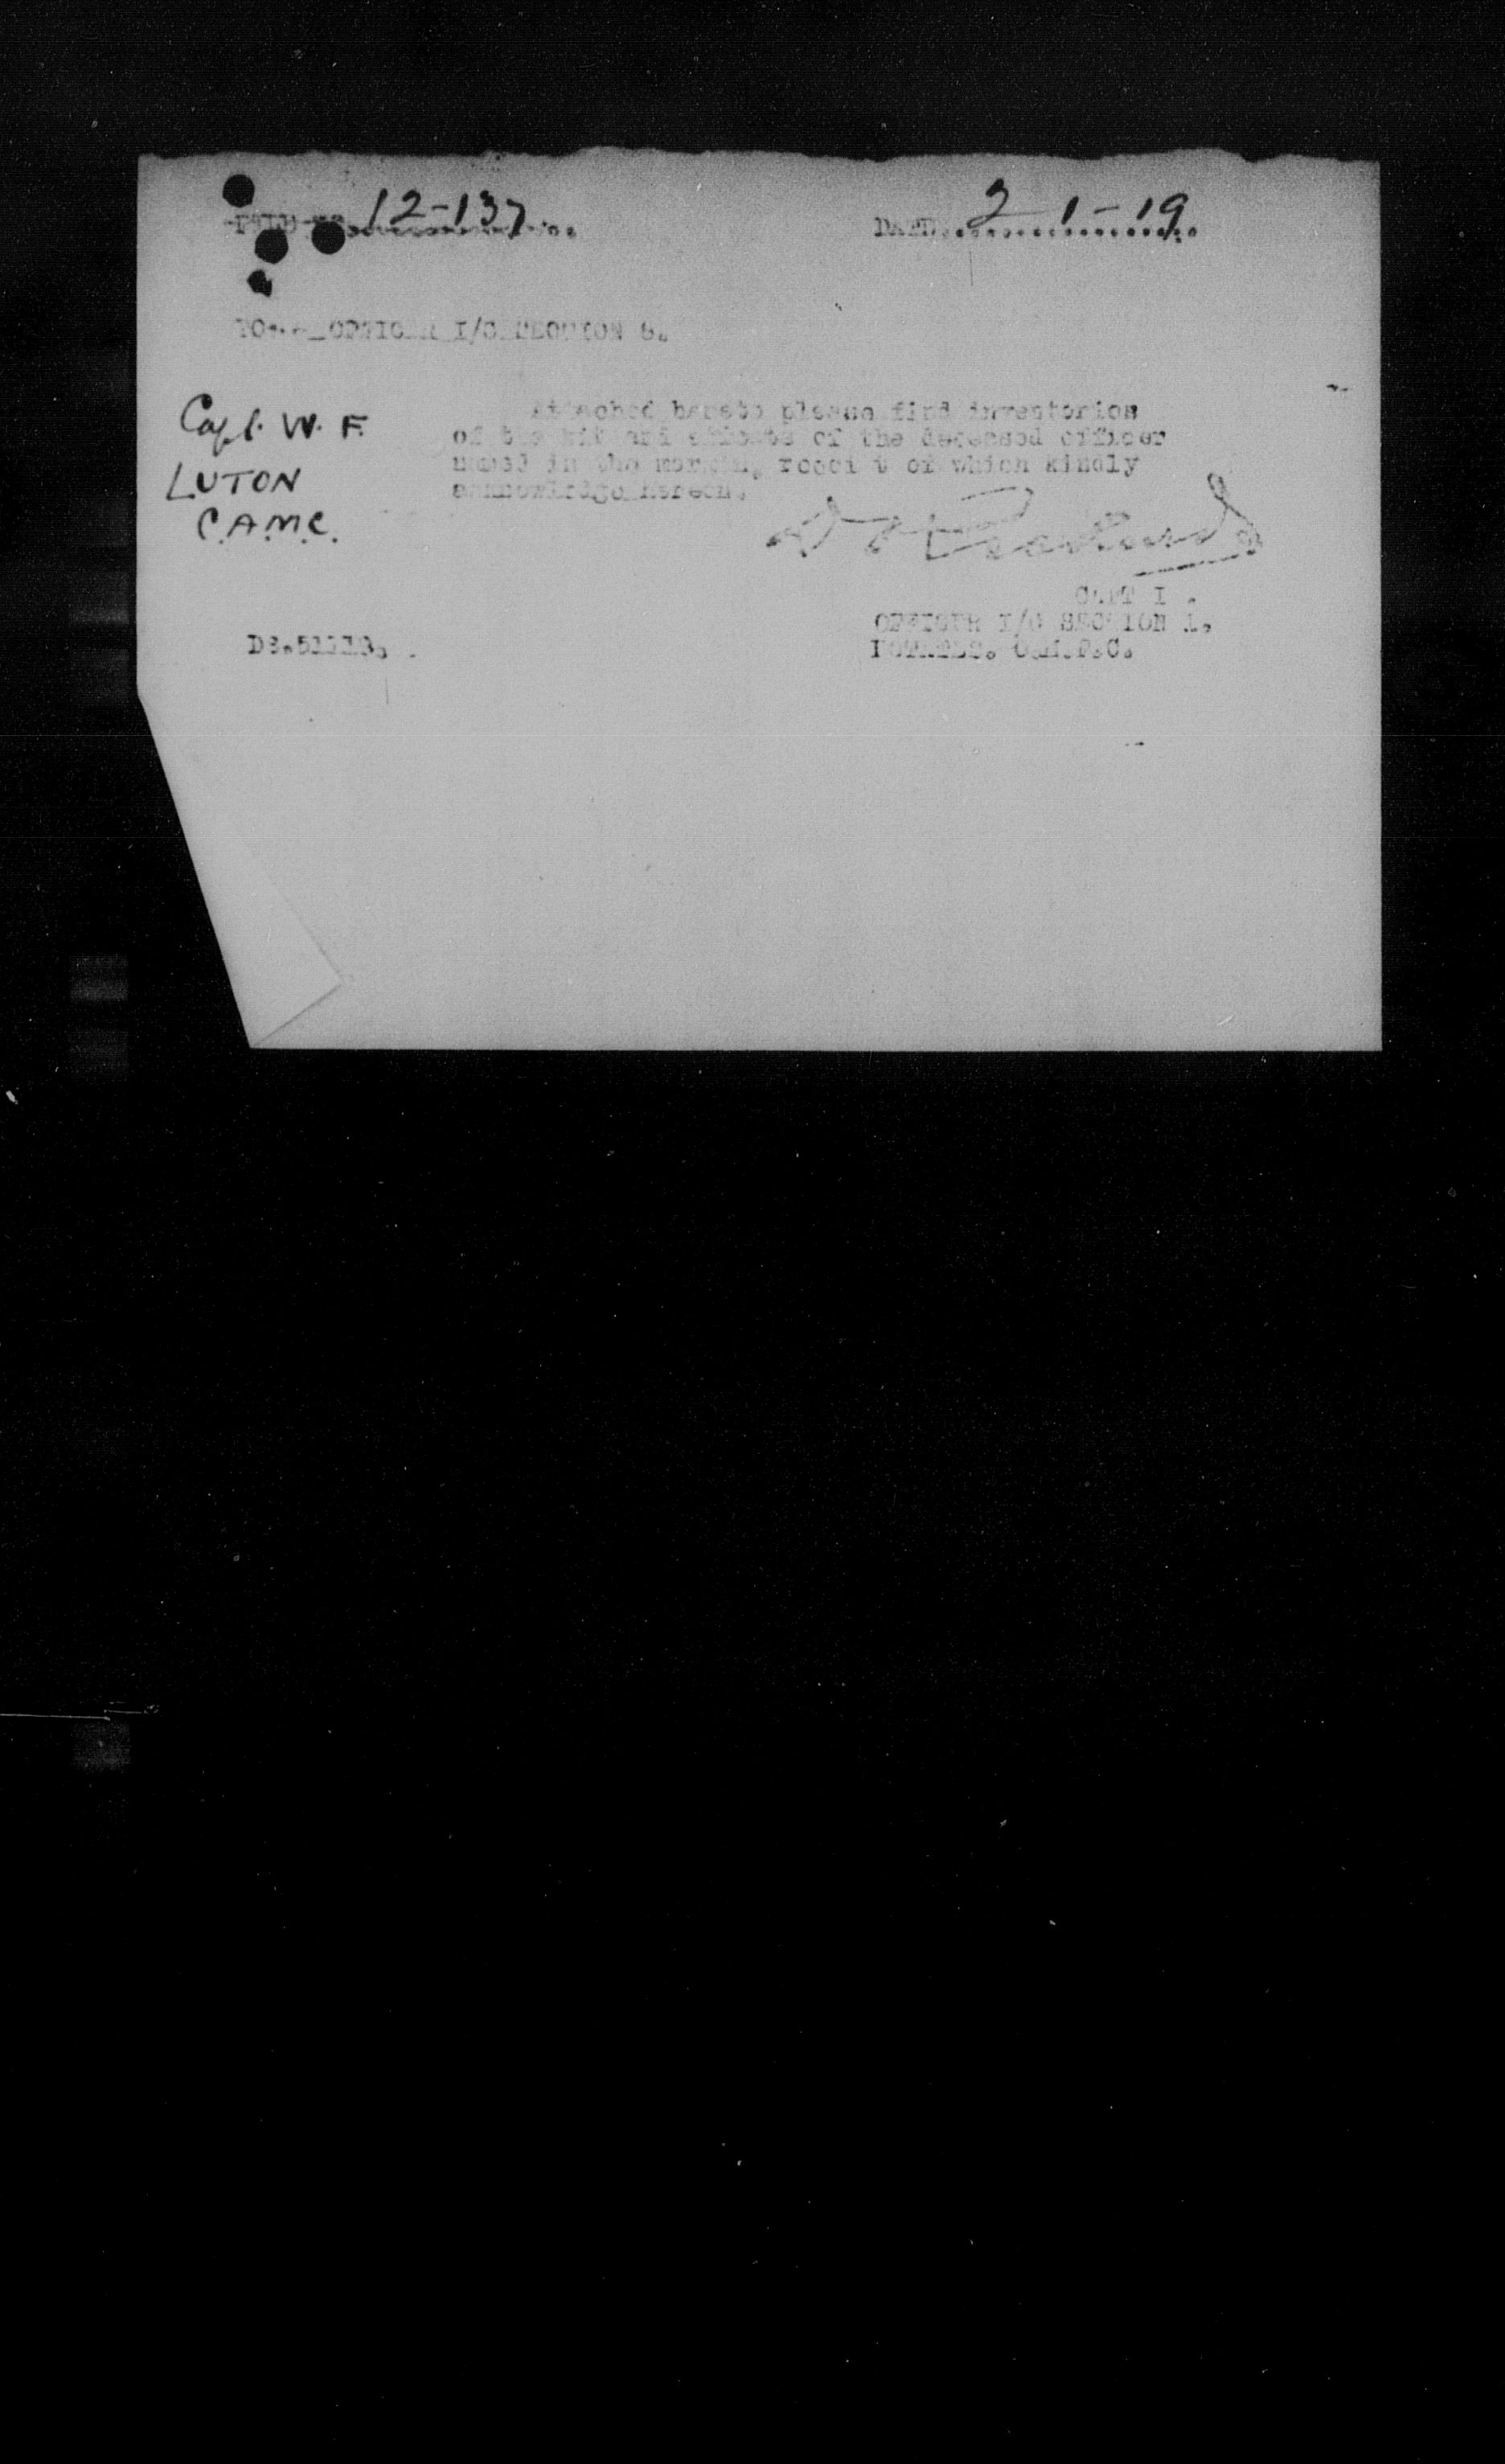 12-137 DATE 2-1-19
TO OFFICER I/C SECTION
Attached hereto please find inventories
Capt. W. F. of the kit and effects of the deceased officer
LUTON named in the margin, receipt of which kindly
C.A.M.C. acknowledge hereon.
CAPT
OFFICER I/C SECTION 1.